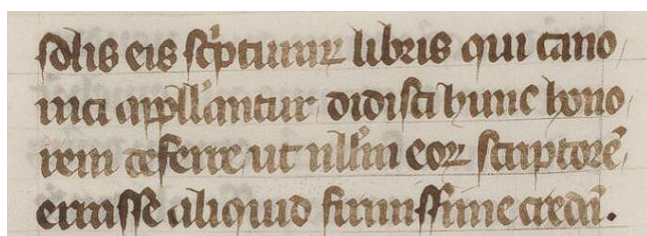 solis eis sc͛pturaꝝ libris qui cano/
nici appll'antur didisci hunc hono/
rem deferre ut null'm eoꝝ scriptorē/
errassē aliquid firmissime credā.